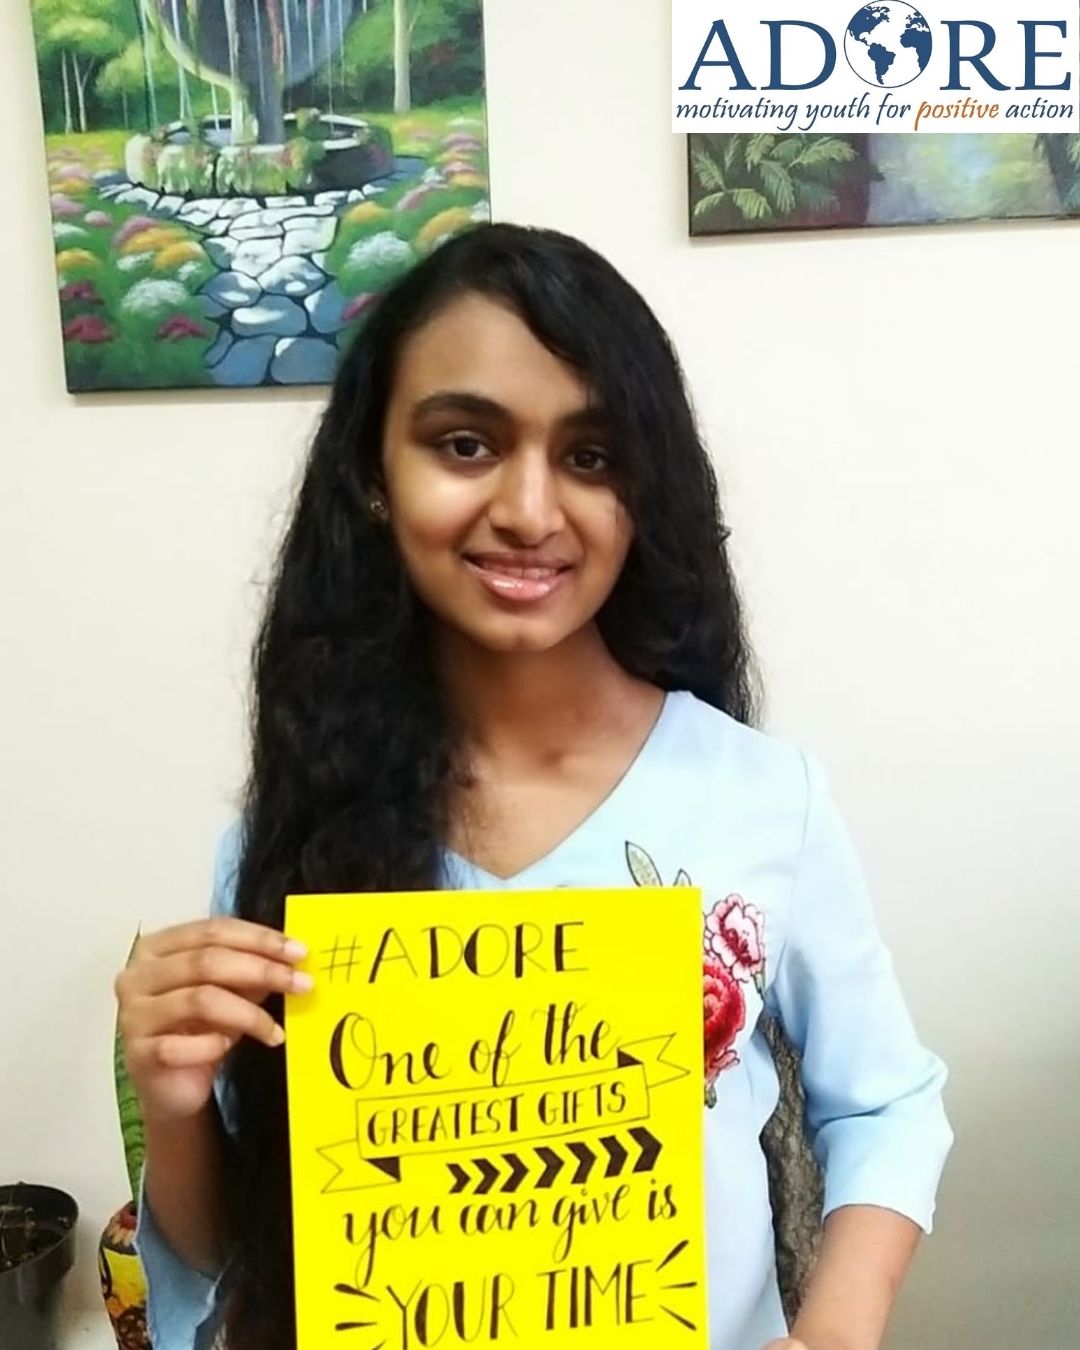 ADORE
motivating youth for positive action
#ADORE
One of the
GREATEST GIFTS
you can give is
YOUR TIME